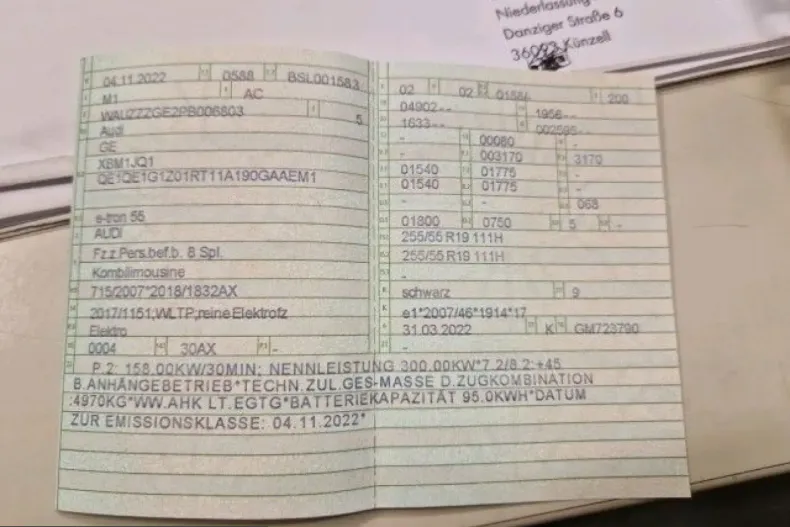 Niederlassung
Danziger Straße 6
36093 Künzell
04.11.2022 0588 BSL001583
M1 AC
WAUZZZGE2PB006803 5
Audi
GE
XBM1JQ1
QE1QE1G1Z01RT11A190GAAEM1
e-tron 55
AUDI
Fz.z.Pers.bef.b. 8 Spl.
Kombilimousine
715/2007*2018/1832AX
2017/1151;WLTP;reine Elektrofz
Elektro
0004 30AX -
02 02 01586 200
04902-- 1956--
1633-- 002595--
- 00080 -
003170 3170
01540 01775 -
01540 01775 -
- - 068
01800 0750 5 -
255/55 R19 111H
255/55 R19 111H
-
schwarz 9
e1*2007/46*1914*17
31.03.2022 K GM723790
P.2: 158.00KW/30MIN; NENNLEISTUNG 300.00KW*7.2/8.2:+45
B.ANHÄNGEBETRIEB*TECHN.ZUL.GES-MASSE D.ZUGKOMBINATION
:4970KG*WW.AHK LT.EGTG*BATTERIEKAPAZITÄT 95.0KWH*DATUM
ZUR EMISSIONSKLASSE: 04.11.2022*